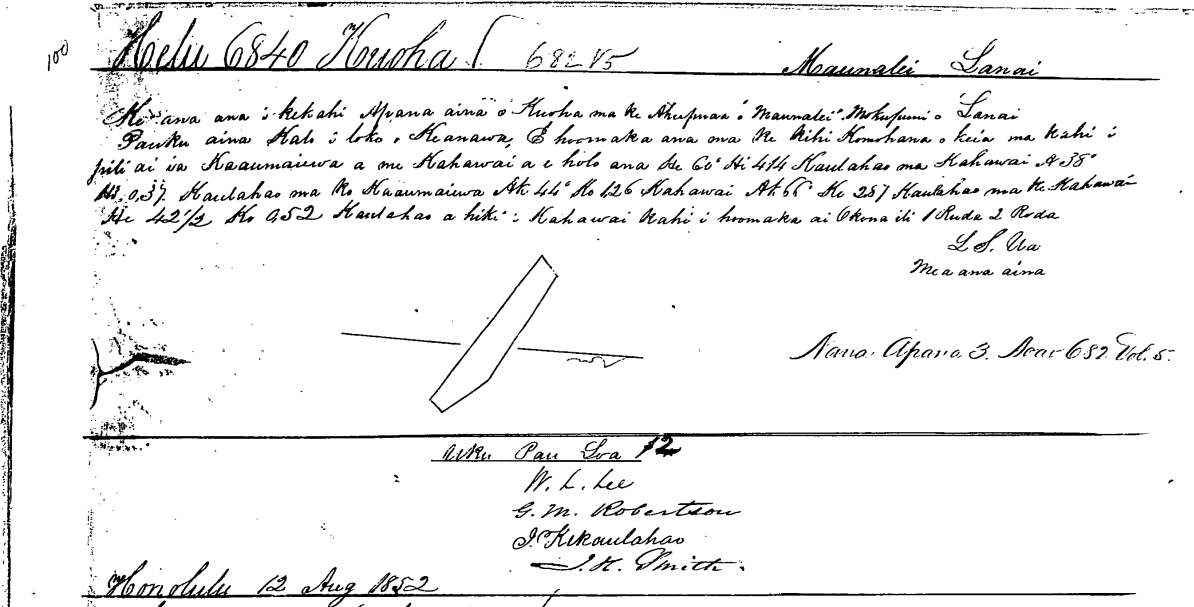 100
Helu 6840 Kuoha 682 V5 Maunalei Lanai
Ke ana ana i kekahi Apana aina o Kuoha ma ke Ahupuaa o Maunalei Mokupuni o Lanai
Pauku aina Kalo i loko o Keanawa, E hoomaka ana ma ke Kihi Komohana o keia ma kahi i
pili ai ia Kaaumaiewa a me Kahawai a e holo ana He 60° Hi 414 Kaulahao ma Kahawai A 38°
Hi. 0,37 Kaulahao ma ko Kaaumaiewa Ak 44° Ko 1,26 Kahawai Ak 66° Ko 287 Kaulahao ma ke Kahawai
He 42 1/2 Ko 0,52 Kaulahao a hiki i Kahawai kahi i hoomaka ai Okona ili 1 Ruda 2 Roda
L S. Ua
Mea ana aina
Nana. Apana 3. Aoao 682. Vol. 5.
Uku Pau Loa $2
W. L. Lee
G. M. Robertson
J. Kekaulahao
J. H. Smith.
Honolulu 12 Aug 1852